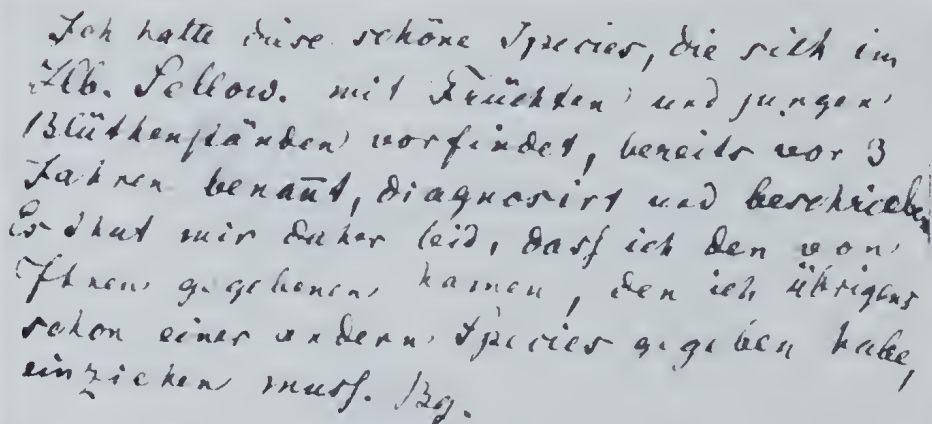 Ich hatte diese schöne Species, die sich im
Hb. Sellow. mit Früchten und jungen
Blüthenständen vorfindet, bereits vor 3
Jahren benan̄t, diagnosirt und beschrieben
Es thut mir daher leid, dasſ ich den von
Ihnen gegebenen Namen, den ich übrigens
schon einer andern Species gegeben habe,
einziehen musſ. Bg.